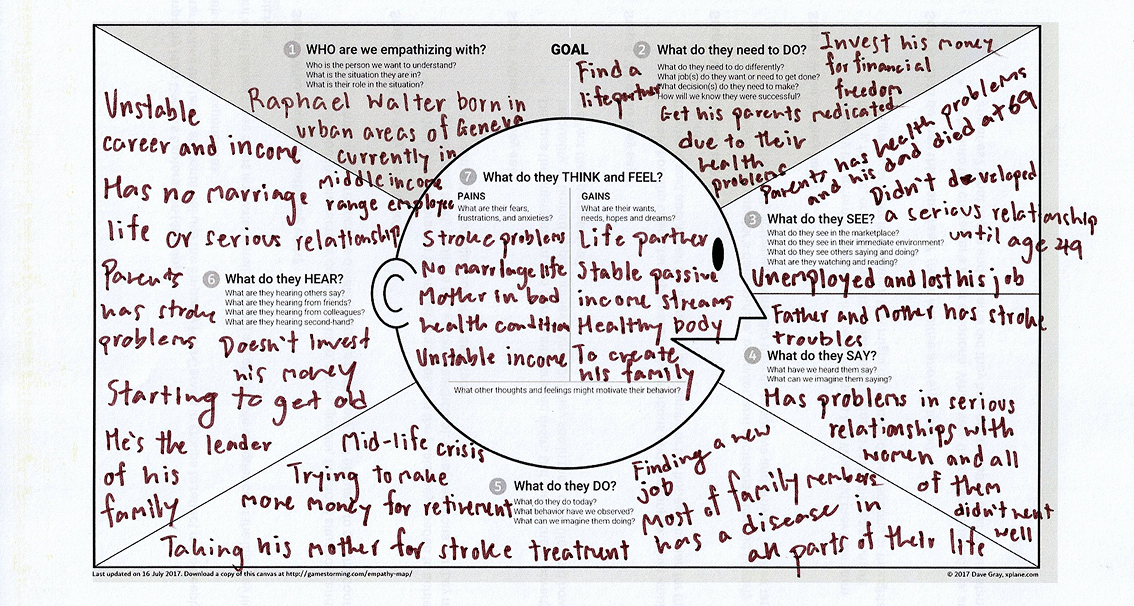 1 WHO are we empathizing with?
Who is the person we want to understand?
What is the situation they are in?
What is their role in the situation?
Raphael Walter born in
urban areas of Geneva
currently in
middle income
range employee
GOAL
2 What do they need to DO?
What do they need to do differently?
What job(s) do they want or need to get done?
What decision(s) do they need to make?
How will we know they were successful?
Find a
lifepartner
Invest his money
for financial
freedom
Get his parents medicated
due to their
health
problems
Parents has health problems
and his dad died at 69
Didn't developed
3 What do they SEE?
a serious relationship
until age 49
What do they see in the marketplace?
What do they see in their immediate environment?
What do they see others saying and doing?
What are they watching and reading?
Unemployed and lost his job
Father and Mother has stroke
troubles
4 What do they SAY?
What have we heard them say?
What can we imagine them saying?
Has problems in serious
relationships with
women and all
of them
didn't went
well
5 What do they DO?
What do they do today?
What behavior have we observed?
What can we imagine them doing?
Mid-life crisis
Trying to make
more money for retirement
Taking his mother for stroke treatment
Finding a new
job
Most of family members
has a disease in
all parts of their life
Unstable
career and income
Has no marriage
life or serious relationship
Parents
has stroke
problems
6 What do they HEAR?
What are they hearing others say?
What are they hearing from friends?
What are they hearing from colleagues?
What are they hearing second-hand?
Doesn't invest
his money
Starting to get old
He's the leader
of his
family
7 What do they THINK and FEEL?
PAINS
What are their fears,
frustrations, and anxieties?
Stroke problems
No marriage life
Mother in bad
health condition
Unstable income
GAINS
What are their wants,
needs, hopes and dreams?
Life partner
Stable passive
income streams
Healthy body
To create
his family
What other thoughts and feelings might motivate their behavior?
Last updated on 16 July 2017. Download a copy of this canvas at http://gamestorming.com/empathy-map/
© 2017 Dave Gray, xplane.com